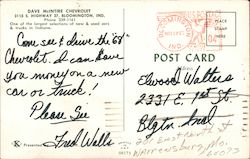 DAVE McINTIRE CHEVROLET
3115 S. HIGHWAY 37, BLOOMINGTON, IND.
Phone 339-1141
One of the largest selections of new & used cars
& trucks in Indiana.
Come see & drive the "68"
Chevrolet. I can save
you money on a new
car or truck!
Please See
Fred Walls
BLOOMINGTON
IND.
PLACE
STAMP
HERE
POST CARD
Elwood Walters
2331 E. 1st St.
Blgtn. Ind
Warrensburg, Mo.